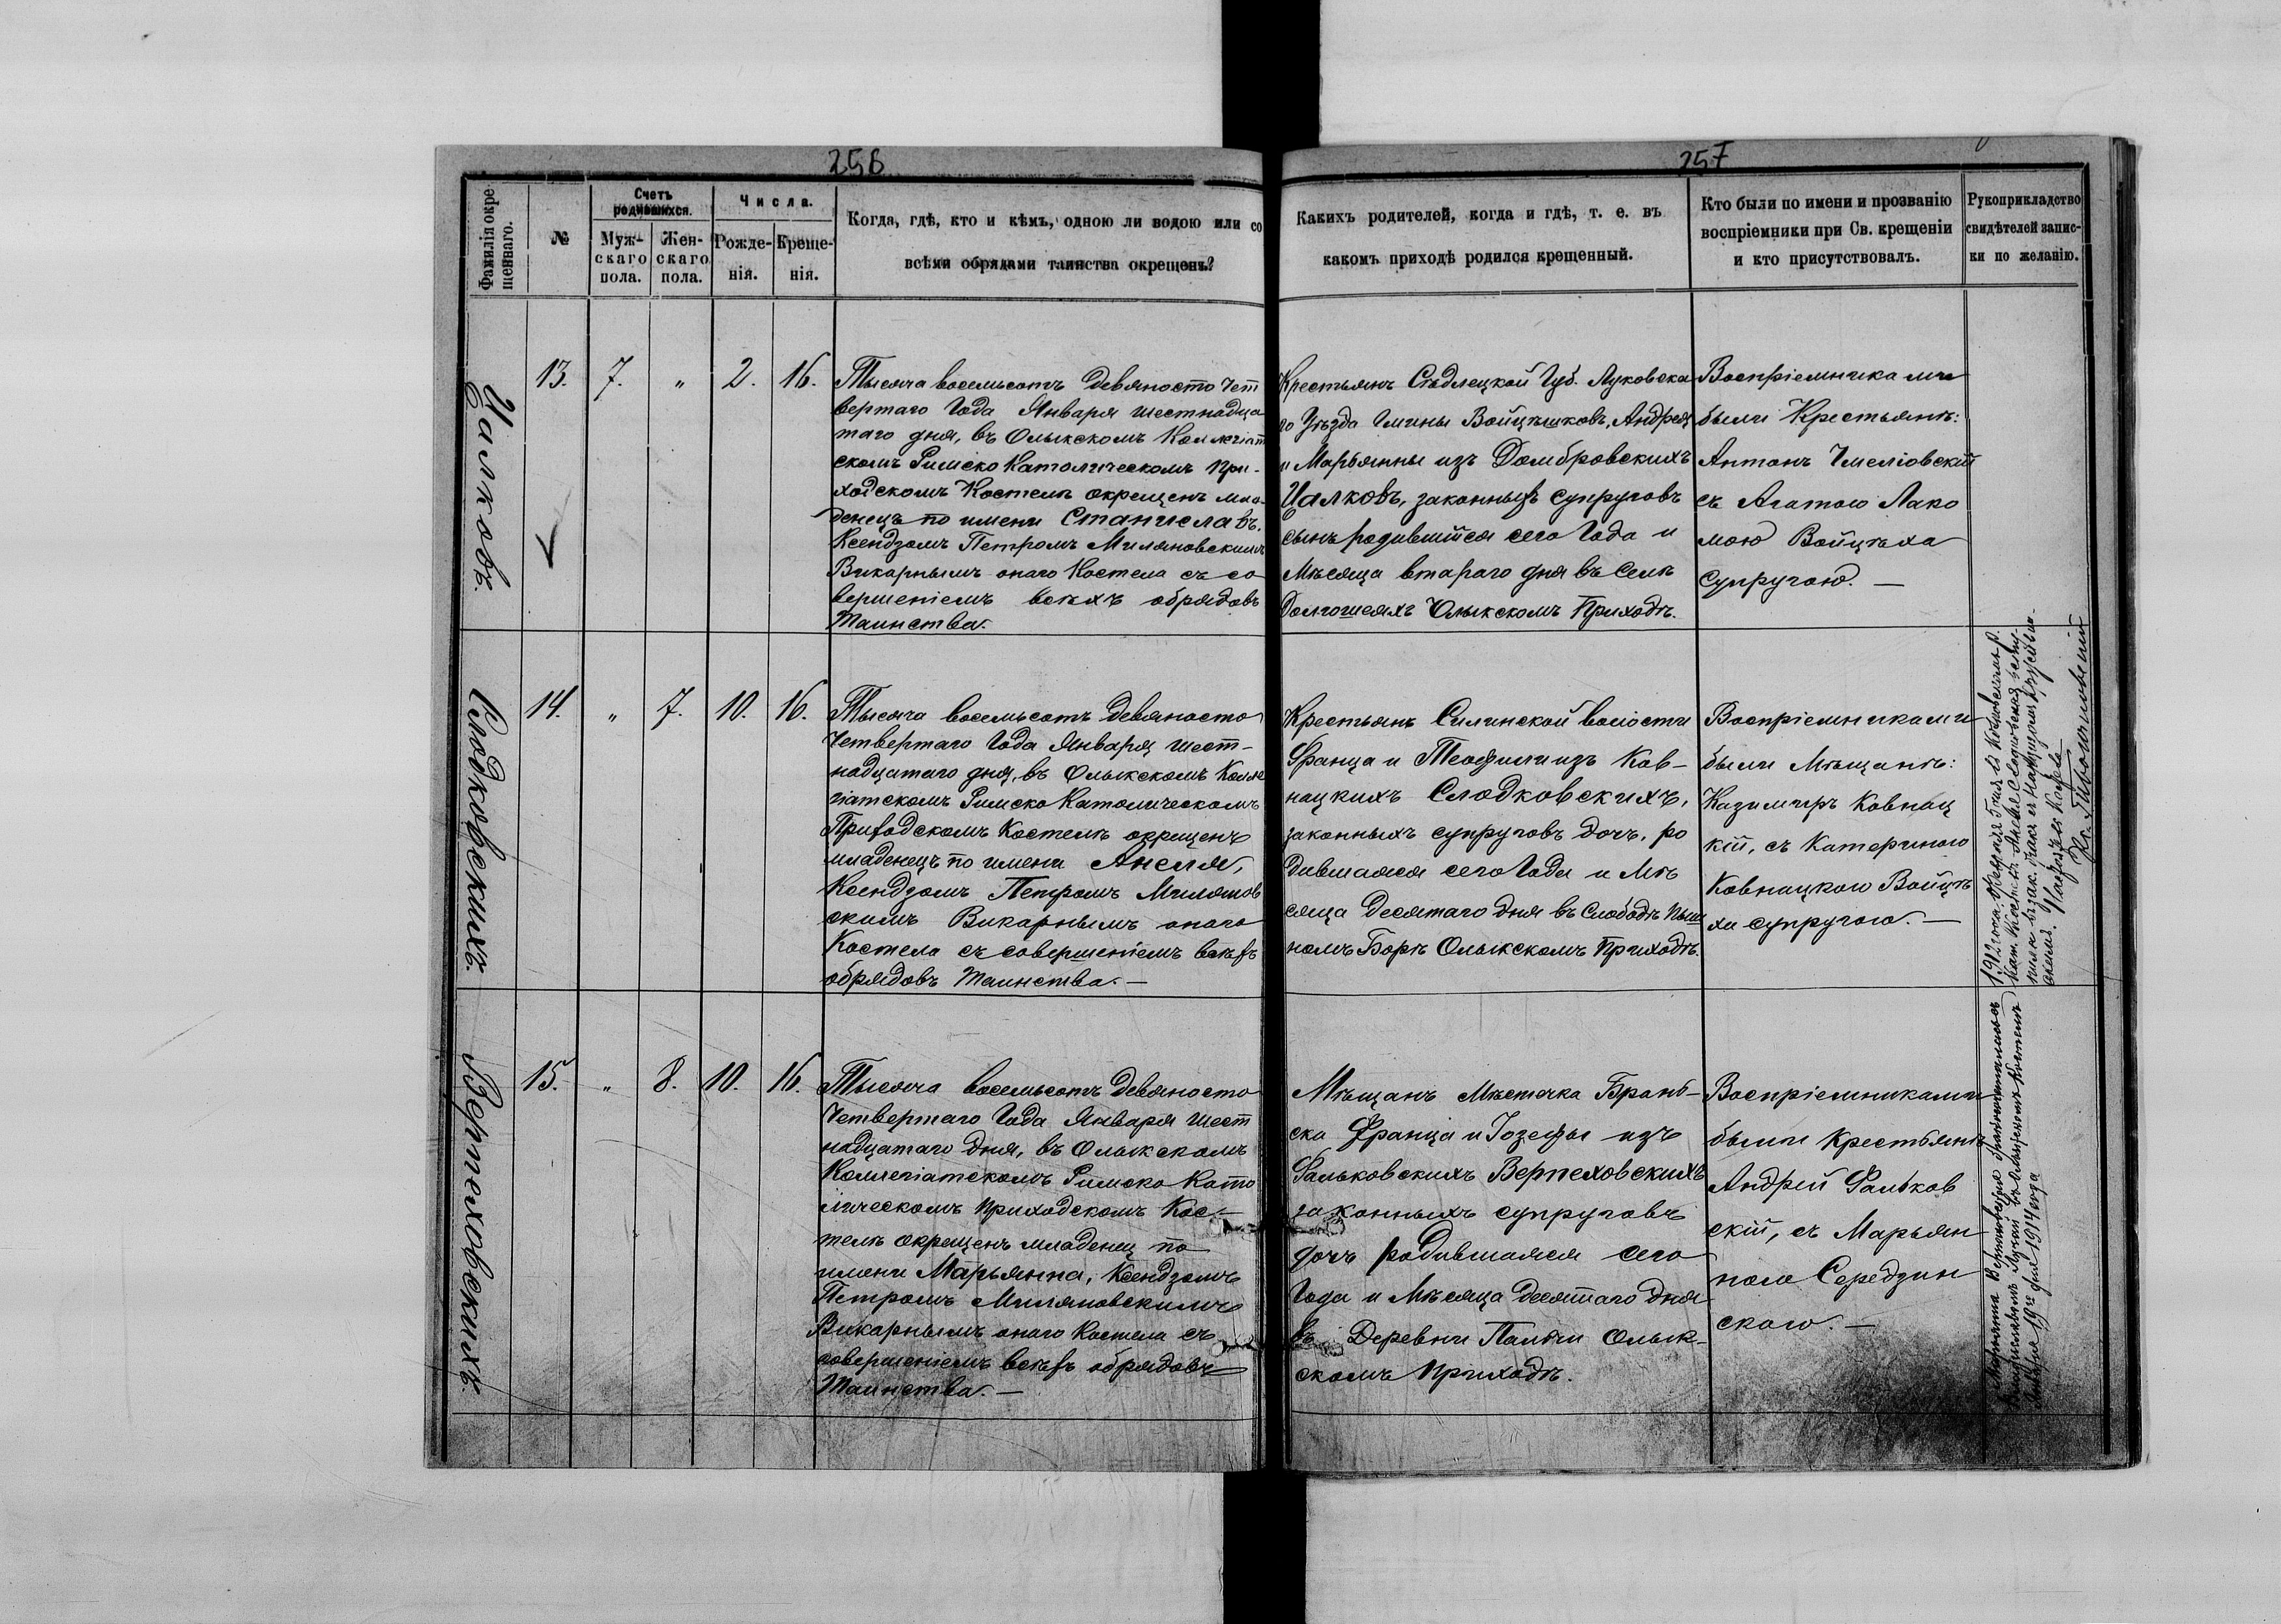 256
257
Фамилія окре
щеннаго.
№
Счетъ
родившихся.
Муж-
скаго
пола.
Жен-
скаго
пола.
Числа.
Рожде-
нія.
Креще-
нія.
Когда, гдѣ, кто и кѣмъ, одною ли водою или со
всѣми обрядами таинства окрещенъ?
Какихъ родителей, когда и гдѣ, т. е. въ
какомъ приходѣ родился крещенный.
Кто были по имени и прозванію
воспріемники при Св. крещеніи
и кто присутствовалъ.
Рукоприкладство
свидѣтелей запис-
ки по желанію.
Цалковъ.
13.
7.
"
2.
16.
Тысяча восемьсотъ девяносто чет
вертаго Года Января шестнадца
таго дня, въ Олыкскомъ Коллегіат
скомъ Римско Католическомъ При-
ходскомъ Костелѣ окрещенъ мла-
денецъ по имени Станиславъ,
Ксендзомъ Петромъ Миляновскимъ
Викарнымъ онаго Костела съ со
вершеніемъ всѣхъ обрядовъ
Таинства.
Крестьянъ Сѣдлецкой Губ. Луковска
го Уѣзда Гмины Войцѣшковъ, Андрея
и Марьянны изъ Домбровскихъ
Цалковъ, законныхъ супруговъ
сынъ родившійся сего Года и
Мѣсяца втараго дня въ Селѣ
Долгошеяхъ Олыкскомъ Приходѣ.
Воспріемниками
были Крестьянѣ:
Антонъ Чмеліовскій
съ Агатою Лако
мою Войцѣха
Супругою. —
Слодковскихъ.
14.
"
7.
10.
16.
Тысяча восемьсотъ девяносто
Четвертаго Года Января шест-
надцатаго дня, въ Олыкскомъ Колле
гіатскомъ Римско Католическомъ
Приходскомъ Костелѣ окрещенъ
младенецъ по имени Анеля,
Ксендзомъ Петромъ Миляновс
скимъ Викарнымъ онаго
Костела съ совершеніемъ всѣхъ
обрядовъ Таинства. —
Крестьянъ Силинской волости
Франца и Теофили изъ Ков-
нацкихъ Слодковскихъ,
законныхъ супруговъ дочь, ро
дившаяся сего Года и Мѣ
сяца Десятаго дня въ Слободѣ Пыш
номъ Борѣ Олыкскомъ Приходѣ.
Воспріемниками
были Мѣщанѣ:
Казимиръ Ковнац
кій, съ Катериною
Ковнацкою Войцѣ
ха супругою. —
1912 года
Верпеховскихъ.
15.
"
8.
10.
16.
Тысяча восемьсотъ девяносто
Четвертаго Года Января шест
надцатаго дня, въ Олыкскомъ
Коллегіатскомъ Римско Като
лическомъ Приходскомъ Кос-
телѣ окрещенъ младенец по
имени Марьянна, Ксендзомъ
Петромъ Миляновскимъ
Викарнымъ онаго Костела съ
совершеніемъ всѣхъ обрядовъ
Таинства. —
Мѣщанъ Мѣстечка Брань-
ска Франца и Іозефы изъ
Фальковскихъ Верпеховскихъ
законныхъ супруговъ
дочь родившаяся сего
Года и Мѣсяца десятаго дня
въ Деревни Пальчи Олык-
скомъ Приходѣ.
Воспріемниками
были Крестьянѣ
Андрей Фальков
скій, съ Марьян
ною Середзин
скою. —
19го дня 1914 года